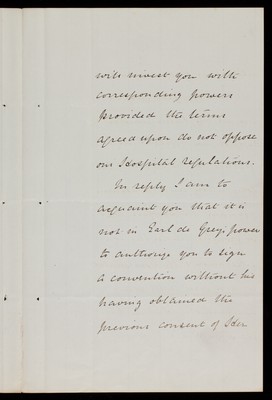 will invest you with
corresponding powers
provided the terms
agreed upon do not oppose
our Hospital regulations.
In reply I am to
acquaint you that it is
not in Earl de Grey's power
to authorize you to sign
a convention without his
having obtained the
previous consent of Her